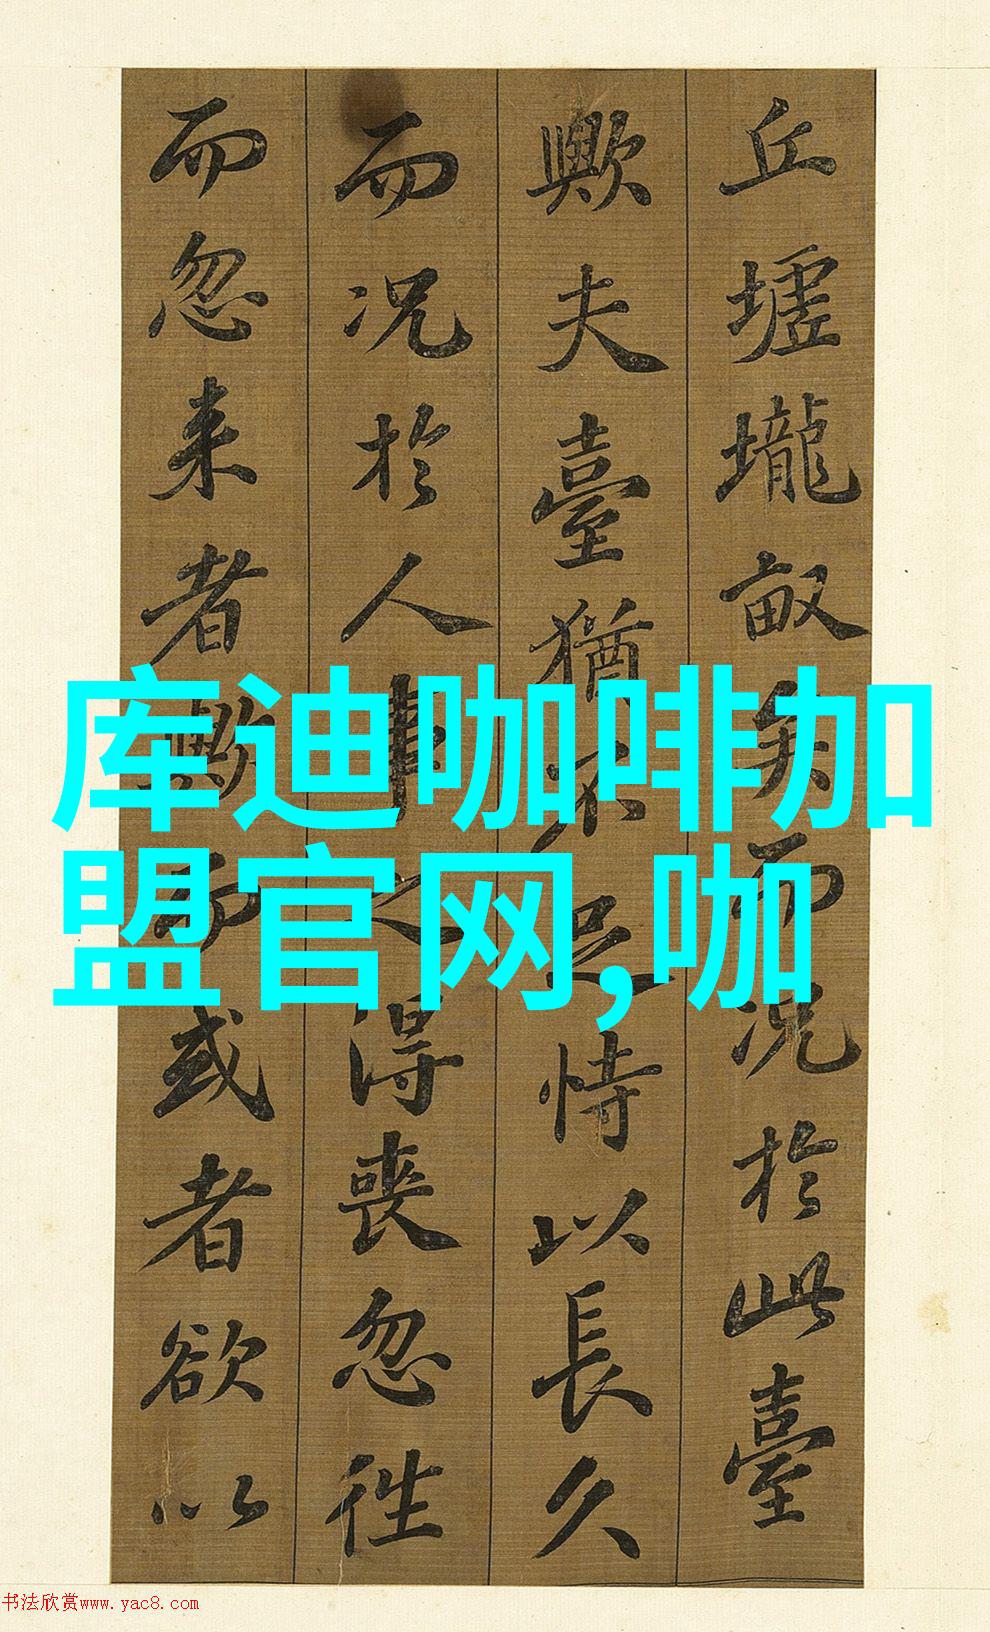 丘墟壠畝矣而况於此臺
歟夫臺猶不足恃以長久
而况於人事之得喪忽往
而忽来者歟而或者欲以
库迪咖啡加
盟官网,咖
书法欣赏www.yac8.com